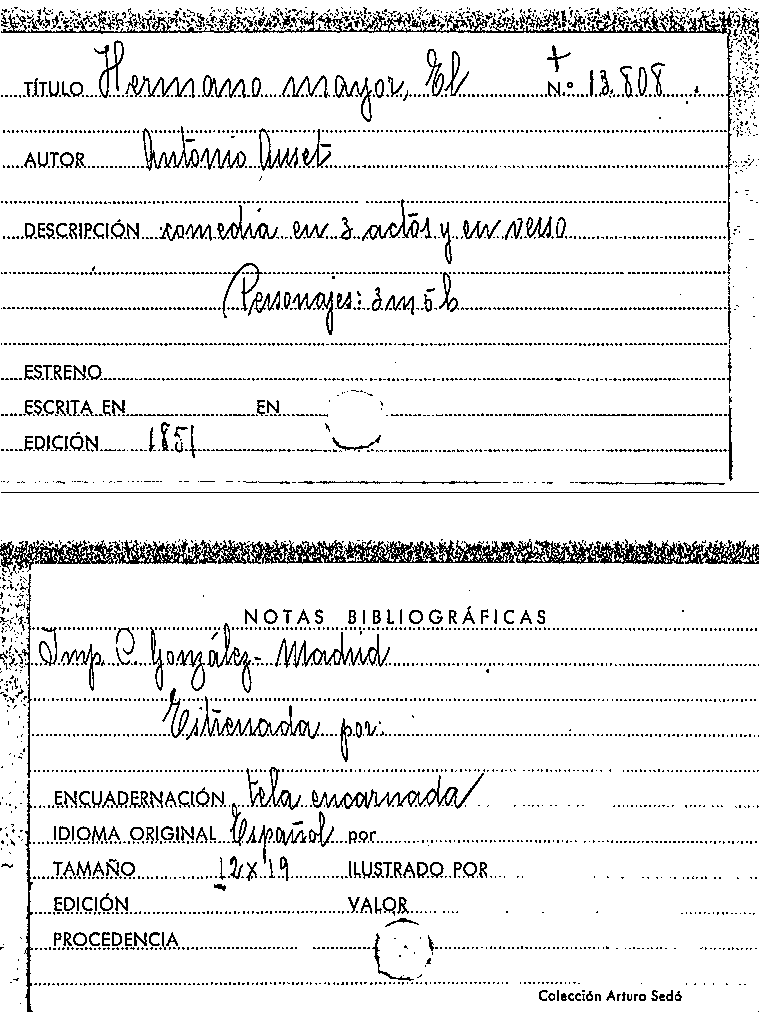 TÍTULO Hermano mayor, El N.º 13.808
AUTOR Antonio Auset
DESCRIPCIÓN comedia en 3 actos y en verso
Personajes: 3 m 5 h
ESTRENO
ESCRITA EN EN
EDICIÓN 1851
NOTAS BIBLIOGRÁFICAS
Imp. C. González - Madrid
Estrenada por:
ENCUADERNACIÓN tela encarnada
IDIOMA ORIGINAL Español por
TAMAÑO 12 x 19 ILUSTRADO POR
EDICIÓN VALOR
PROCEDENCIA
Colección Arturo Sedó